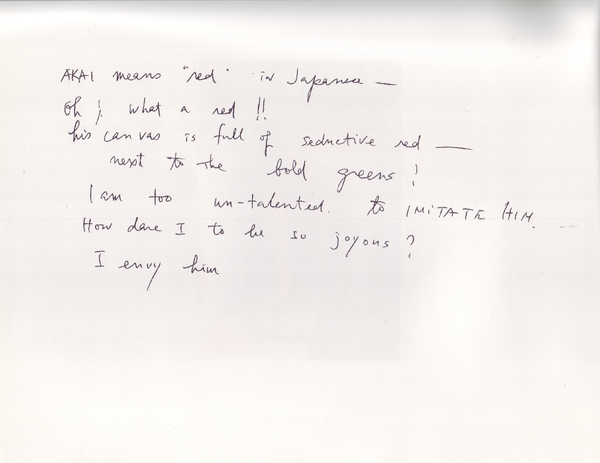 AKAI means "red" in Japanese —
Oh! what a red!!
his canvas is full of seductive red —
next to the bold greens!
I am too un-talented. to IMITATE HIM.
How dare I to be so joyous?
I envy him